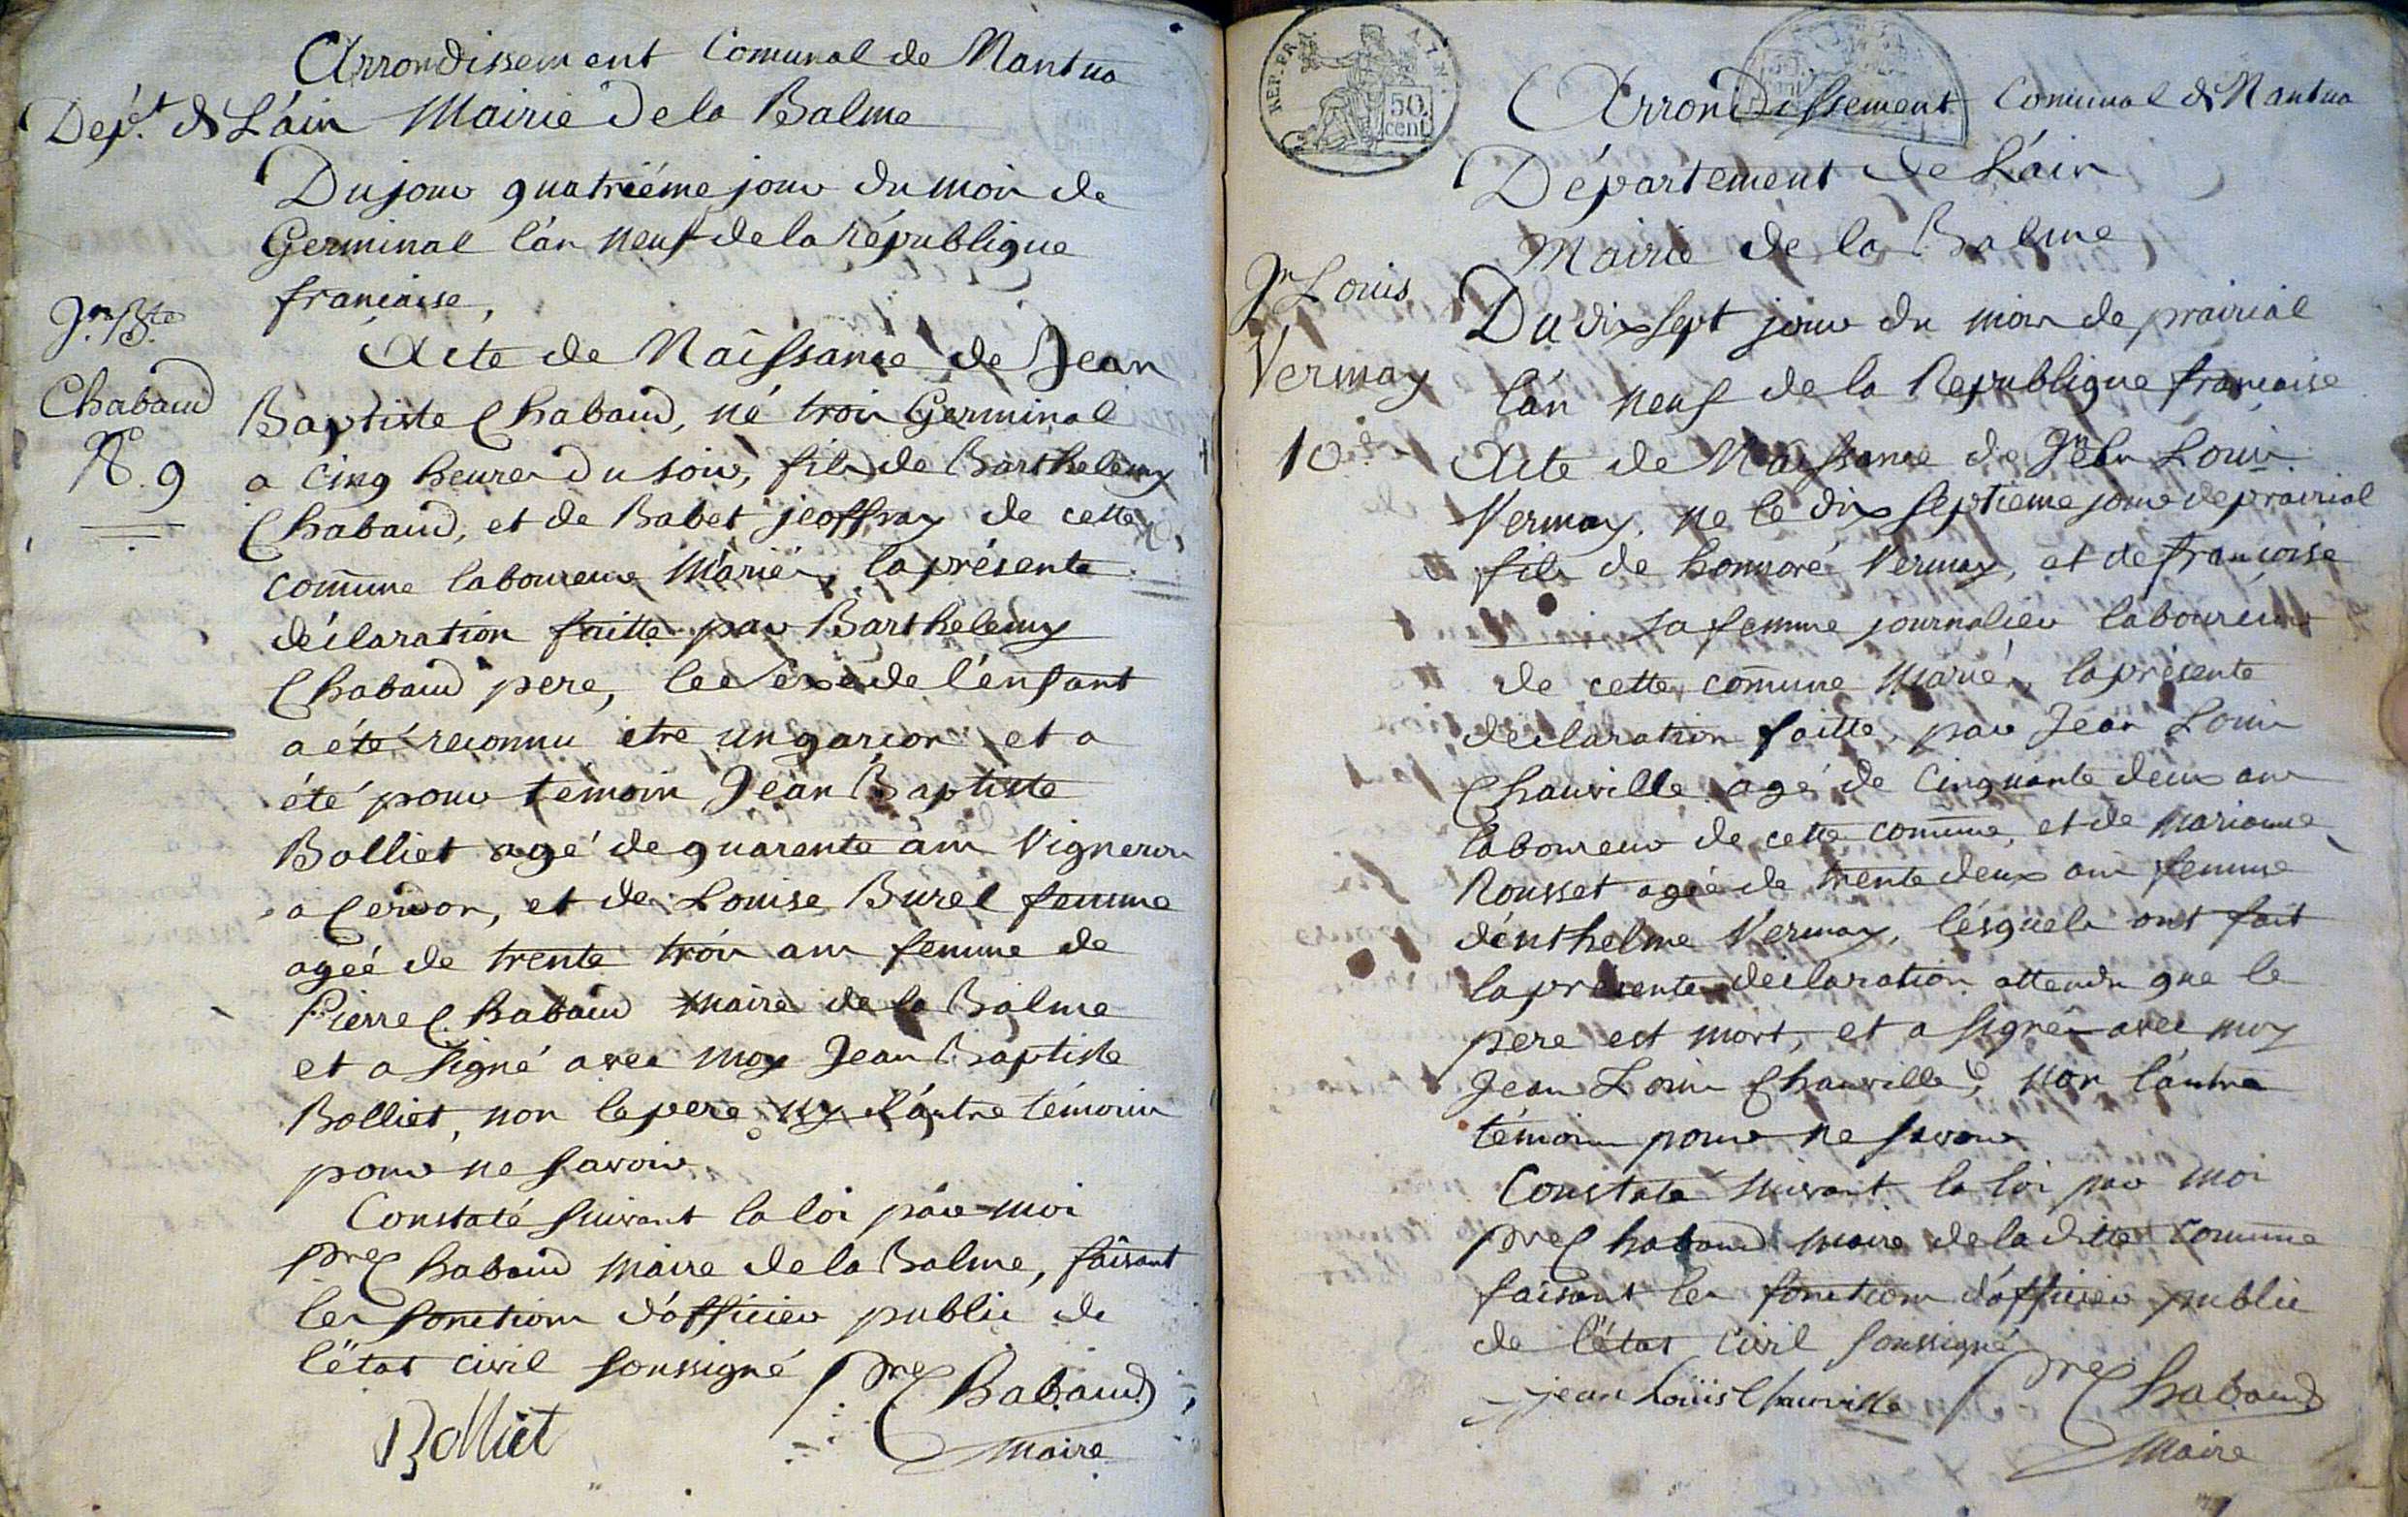 Arrondissement Comunal de Mantua
Dep.t de L'ain Mairie de la Balme
Du jour quatriéme jour du mois de
Germinal l'an neuf de la république
francaise,
Jn. Bte
Chabaud
N°. 9
Acte de Naissance de Jean
Baptiste Chabaud, né trois Germinal
a Cinq heures du soir, fils de Barthelemy
Chabaud, et de Babet jeoffray de cette
comune laboureurs Mariés, la présente
déclaration faitte par Barthelemy
Chabaud pere, le Sexe de l'enfant
a été reconnu etre un garçon et a
été pour témoin Jean Baptiste
Bolliet agé de quarente ans Vigneron
a Cerdon, et de Louise Burel femme
ageé de trente trois ans femme de
Pierre Chabaud maire de la Balme
et a signé avec moy Jean Baptiste
Bolliet, non le pere ny l'autre témoin
pour ne savoir
Constaté suivant la loi par moi
Pre Chabaud maire de la Balme, faisant
les fonctions d'officier public de
l'état civil soussigné
Pre Chabaud
Bolliet
maire
REP. FRA. 50. cent.
Arrondissement Comunal de Nantua
Département de L'ain
Mairie de la Balme
Jn Louis
Vermay
10.e
Du dix sept jour du mois de prairial
l'an neuf de la Republique francaise
Acte de Naissance de Jean Louis
Vermay, ne le dix septieme jour de prairial
fils de honnoré Vermay, et de françoise
sa femme journalier laboureurs
de cette comune Marié, la présente
déclaration faitte, par Jean Louis
Chauville agé de Cinquante deux ans
laboureur de cette comune, et de marianne
Rousset ageé de trente deux ans femme
d'enthelme Vermay, lésquels ont fait
la présente déclaration attendu que le
pere est mort, et a signé avec moy
Jean Louis Chauville, non l'autre
témoin pour ne savoir
Constaté suivant la loi par moi
Pre Chabaud maire de la ditte comune
faisant les fonctions d'officier public
de l'état civil soussigné
jean Loüis Chauville Pre Chabaud
maire